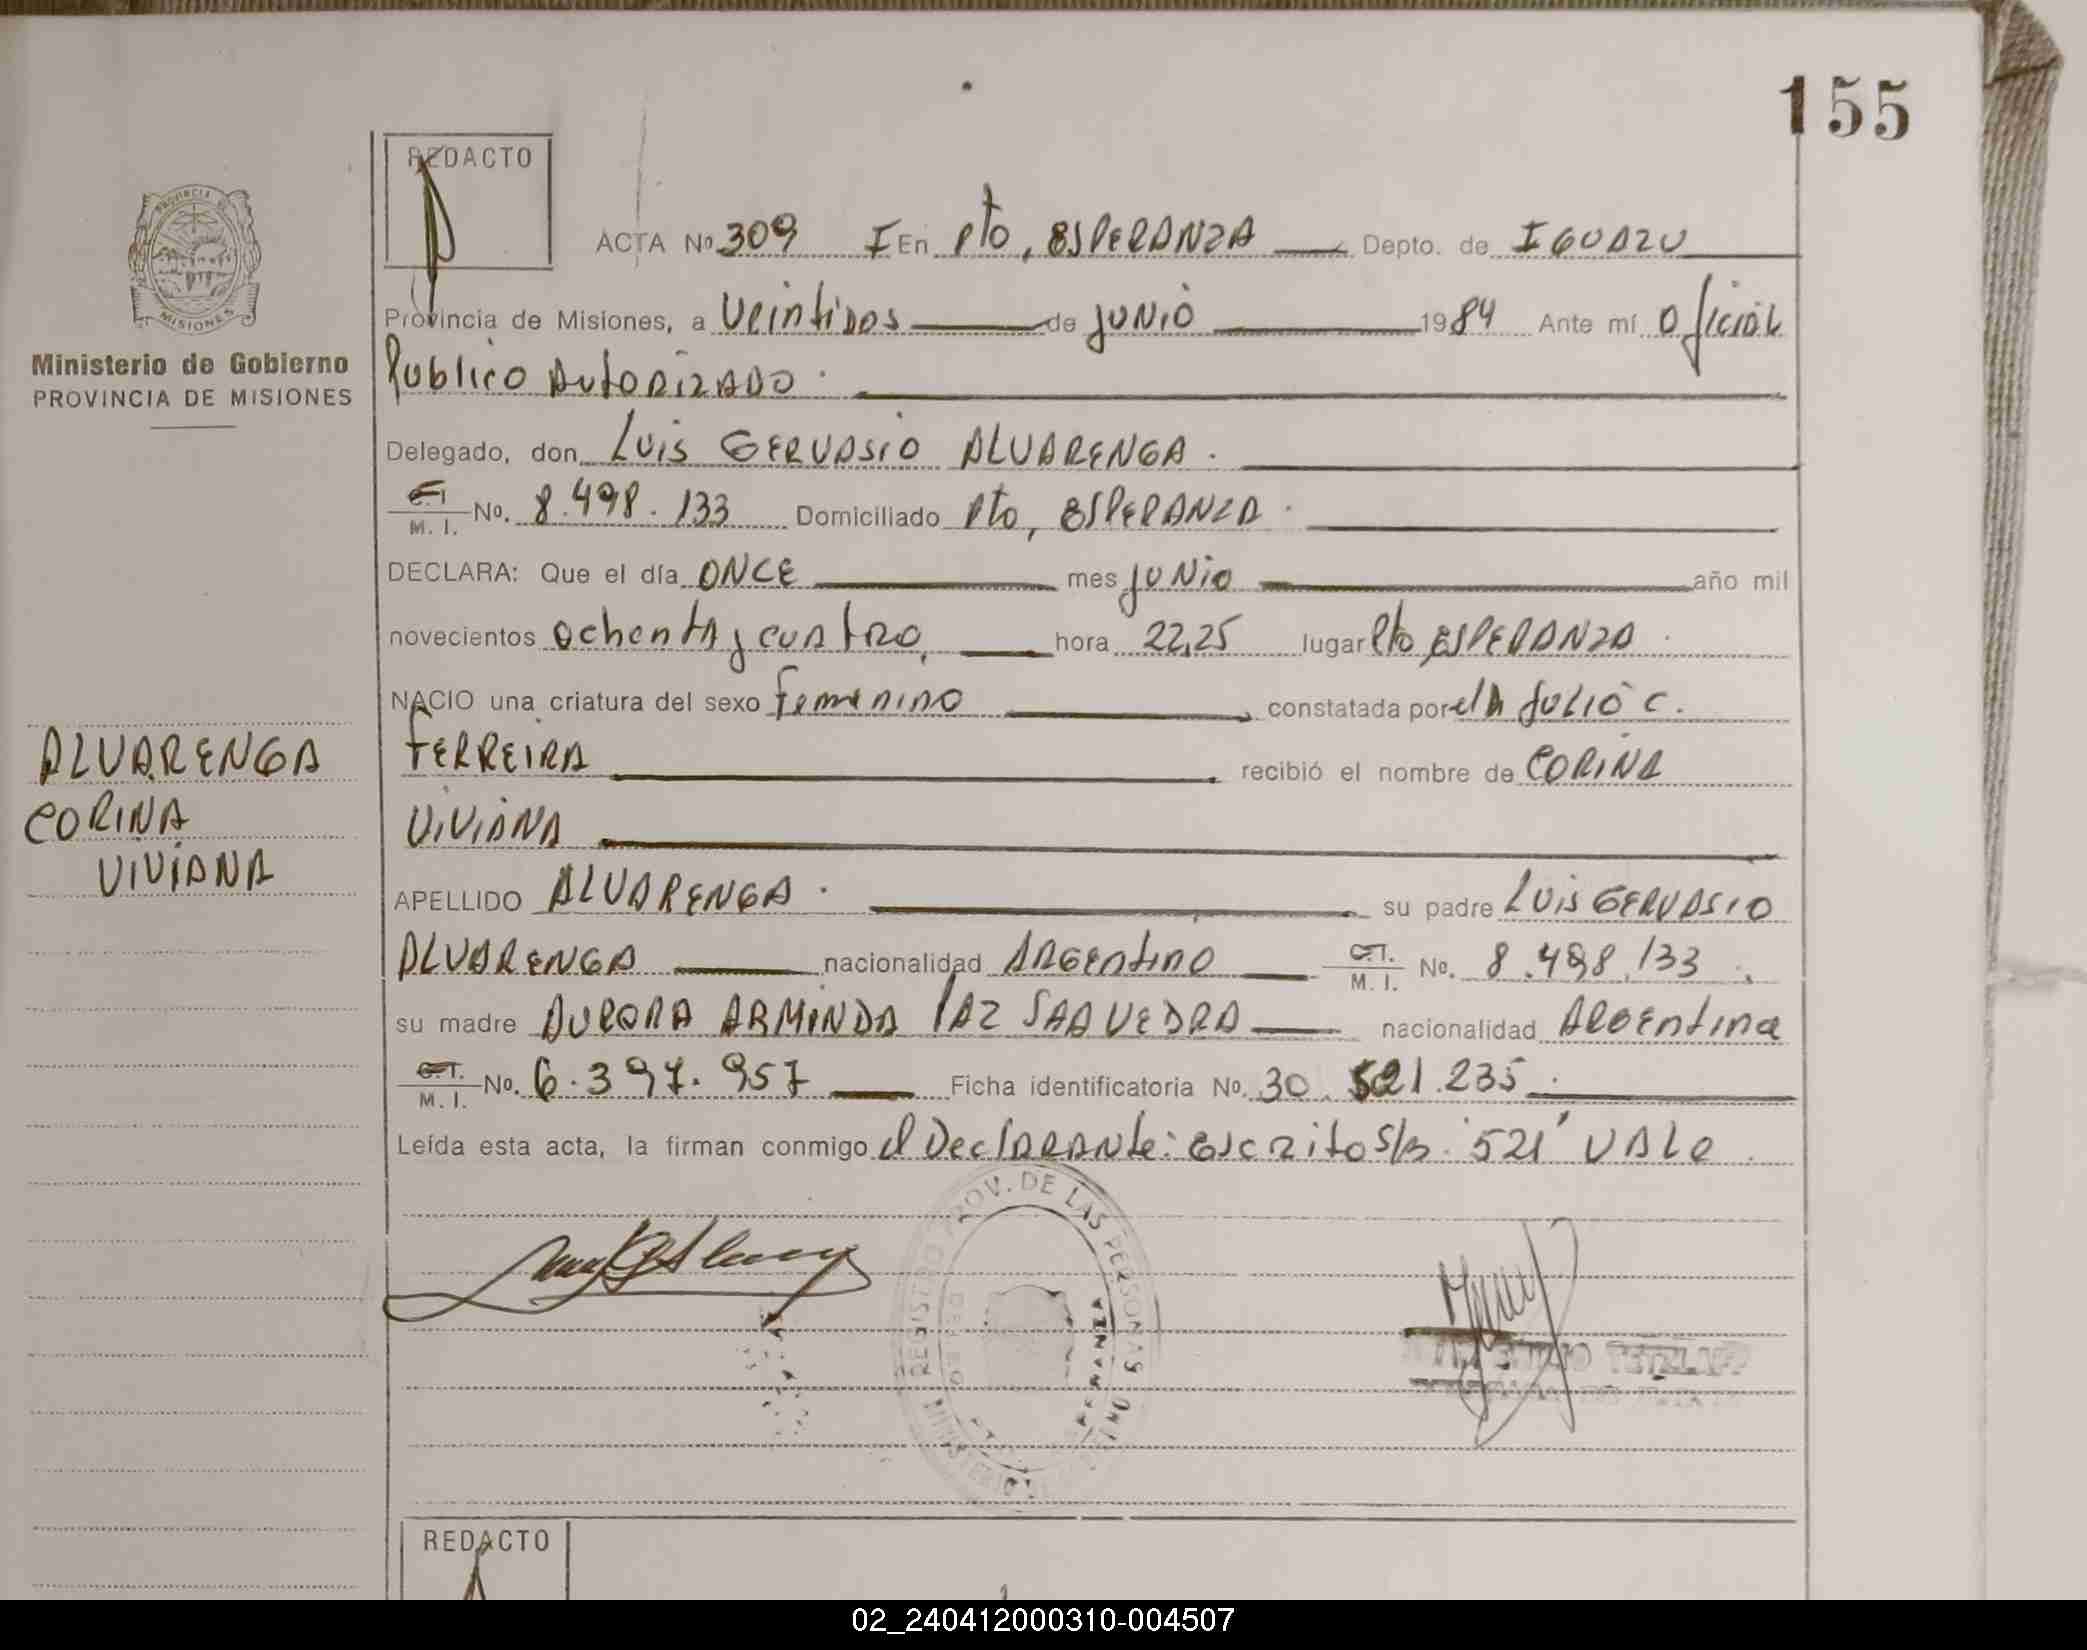 155
REDACTO
ACTA Nº 309 I En Pto, ESPERANZA Depto. de IGUAZU
Provincia de Misiones, a Veintidos de junio 1984 Ante mí Oficial
Publico Autorizado.
Delegado, don Luis GERVASIO ALVARENGA.
C.I. M. I. No. 8.498.133 Domiciliado Pto, ESPERANZA.
DECLARA: Que el día ONCE mes junio año mil
novecientos ochenta y cuatro, hora 22,25 lugar Pto ESPERANZA.
NACIO una criatura del sexo femenino constatada por el Julio C.
FERREIRA recibió el nombre de CORINA
VIVIANA
APELLIDO ALVARENGA. su padre Luis GERVASIO
ALVARENGA nacionalidad ARGENtino C.I. M. I. No. 8.498.133.
su madre AURORA ARMINDA PAZ SAAVEDRA nacionalidad ARGEntina
C.I. M. I. No. 6.397.957 Ficha identificatoria No. 30.521.235.
Leída esta acta, la firman conmigo el DeclARANte: escrito s/b. "521" VALE.
Ministerio de Gobierno
PROVINCIA DE MISIONES
ALVARENGA
CORINA
VIVIANA
PROVINCIA DE
MISIONES
REGISTRO PROV. DE LAS PERSONAS
MINISTERIO
TETZLAFF
REDACTO
02_240412000310-004507